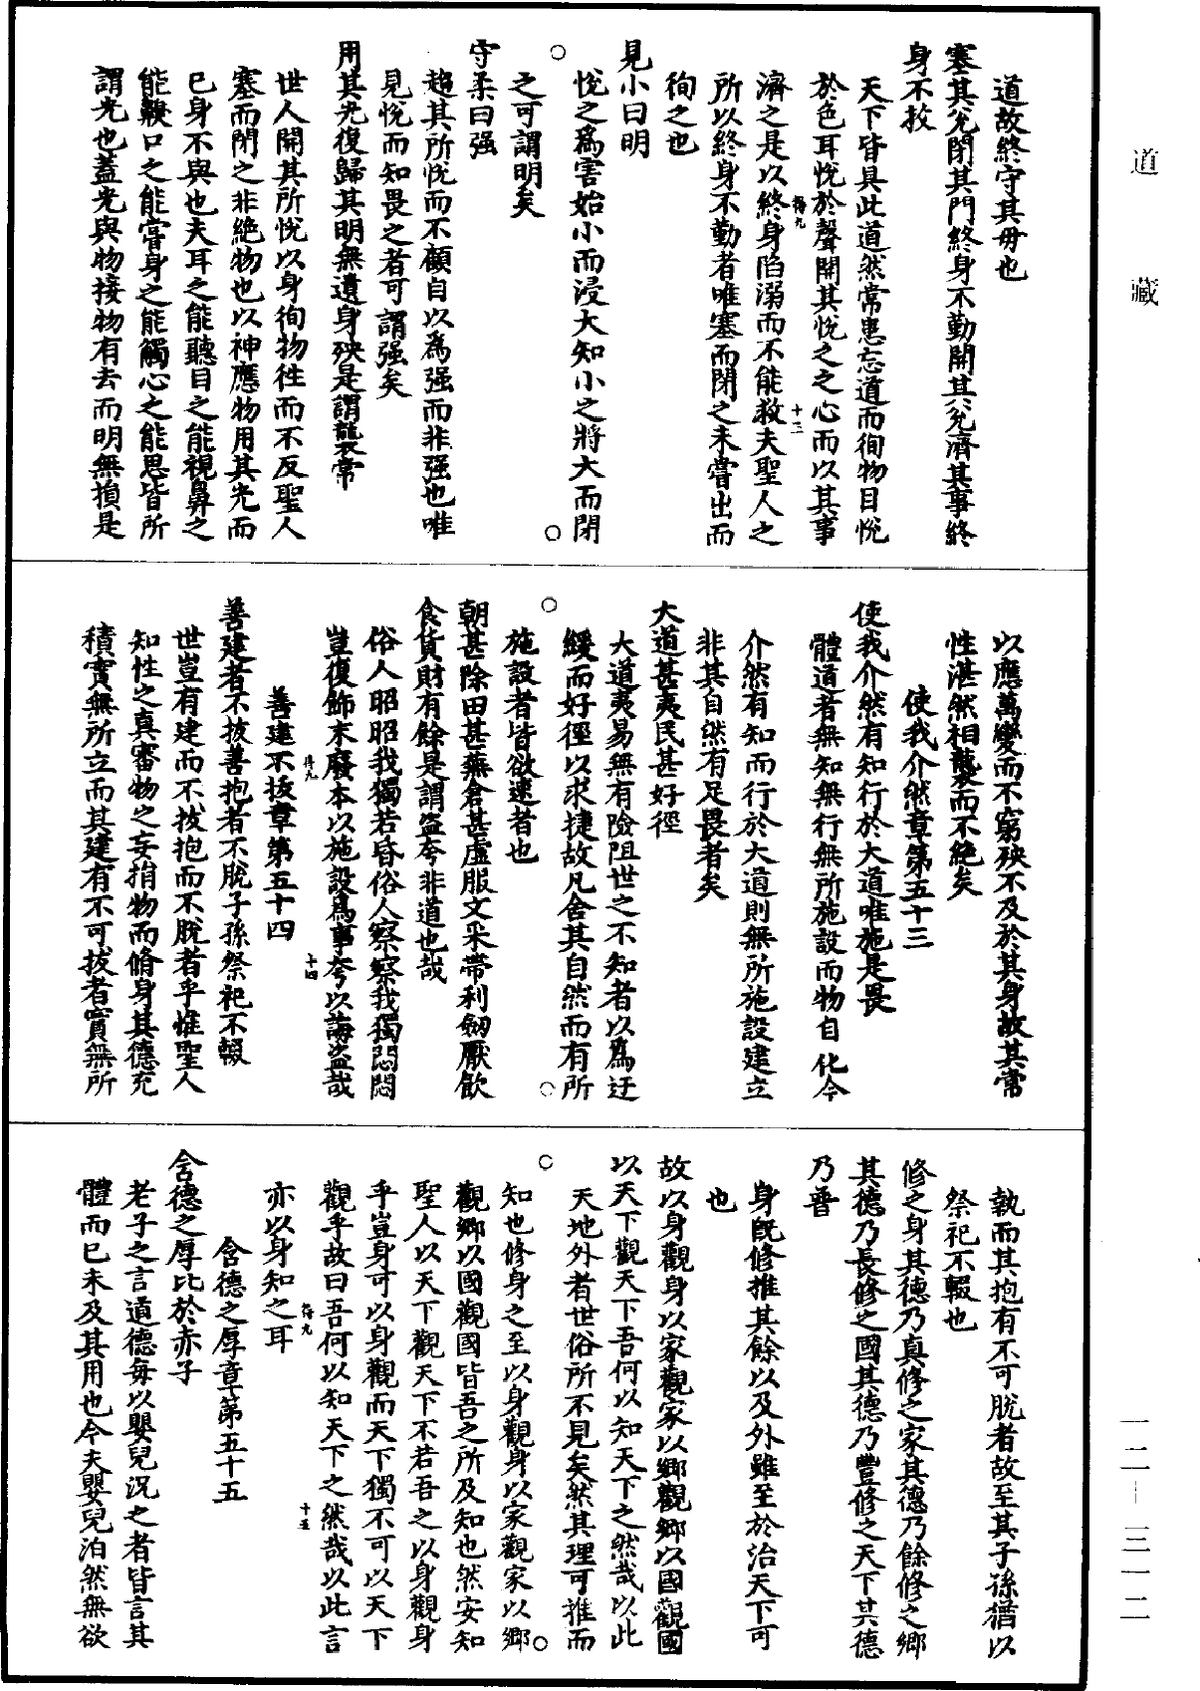 道藏
道故終守其母也
塞其兌閉其門終身不勤開其兌濟其事終
身不救
天下皆具此道然常患忘道而徇物目悅
於色耳悅於聲開其悅之之心而以其事
濟之是以終身陷溺而不能救夫聖人之
所以終身不勤者唯塞而閉之未嘗出而
徇之也
見小曰明
悅之為害始小而浸大知小之將大而閉
之可謂明矣
守柔曰强
趨其所悅而不顧自以為强而非强也唯
見悅而知畏之者可謂强矣
用其光復歸其明無遺身殃是謂襲常
世人開其所悅以身徇物往而不反聖人
塞而閉之非絶物也以神應物用其光而
已身不與也夫耳之能聽目之能視鼻之
能齅口之能嘗身之能觸心之能思皆所
謂光也蓋光與物接物有去而明無損是
以應萬變而不窮殃不及於其身故其常
性湛然相襲而不絶矣
使我介然章第五十三
使我介然有知行於大道唯施是畏
體道者無知無行無所施設而物自化今
介然有知而行於大道則無所施設建立
非其自然有足畏者矣
大道甚夷民甚好徑
大道夷易無有險阻世之不知者以為迂
緩而好徑以求捷故凡舍其自然而有所
施設者皆欲速者也
朝甚除田甚蕪倉甚虛服文采帶利劒厭飲
食貨財有餘是謂盜夸非道也哉
俗人昭昭我獨若昏俗人察察我獨悶悶
豈復飾末廢本以施設為事夸以誨盜哉
得九
十四
善建不拔章第五十四
善建者不拔善抱者不脫子孫祭祀不輟
世豈有建而不拔抱而不脫者乎惟聖人
知性之真審物之妄捐物而脩身其德充
積實無所立而其建有不可拔者實無所
執而其抱有不可脫者故至其子孫猶以
祭祀不輟也
修之身其德乃真修之家其德乃餘修之鄉
其德乃長修之國其德乃豐修之天下其德
乃普
身旣修推其餘以及外雖至於治天下可
也
故以身觀身以家觀家以鄉觀鄉以國觀國
以天下觀天下吾何以知天下之然哉以此
天地外者世俗所不見矣然其理可推而
知也修身之至以身觀身以家觀家以鄉
觀鄉以國觀國皆吾之所及知也然安知
聖人以天下觀天下不若吾之以身觀身
乎豈身可以身觀而天下獨不可以天下
觀乎故曰吾何以知天下之然哉以此言
得九
十五
亦以身知之耳
含德之厚章第五十五
含德之厚比於赤子
老子之言道德每以嬰兒況之者皆言其
體而已未及其用也今夫嬰兒泊然無欲
一二—三一二